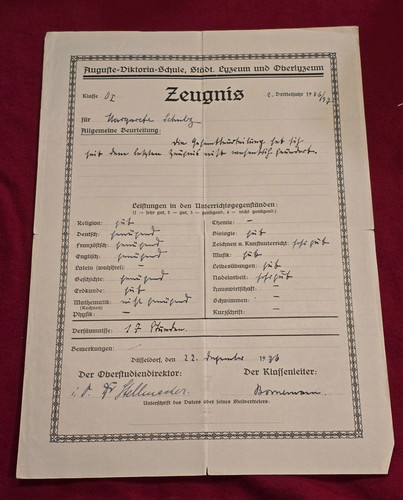 Auguste-Viktoria-Schule, Städt. Lyzeum und Oberlyzeum
Zeugnis
Klasse O I 2. Dritteljahr 1936/1937
für Margarete Schulz
Allgemeine Beurteilung:
die Gesamtbeurteilung hat sich
seit dem letzten Zeugnis nicht wesentlich geändert.
Leistungen in den Unterrichtsgegenständen:
(1 = sehr gut, 2 = gut, 3 = genügend, 4 = nicht genügend)
Religion: gut
Deutsch: genügend
Französisch: genügend
Englisch: genügend
Latein (wahlfrei): —
Geschichte: genügend
Erdkunde: gut
Mathematik: nicht genügend
(Rechnen)
Physik: —
Chemie: —
Biologie: gut
Zeichnen u. Kunstunterricht: sehr gut
Musik: gut
Leibesübungen: gut
Nadelarbeit: sehr gut
Hauswirtschaft: —
Schwimmen: —
Kurzschrift: —
Versäumnisse: 17 Stunden.
Bemerkungen: —
Düsseldorf, den 22. Dezember 1936
Der Oberstudiendirektor: Der Klassenleiter:
i. V. Dr Stellmacher. Bornemann.
Unterschrift des Vaters oder seines Stellvertreters.